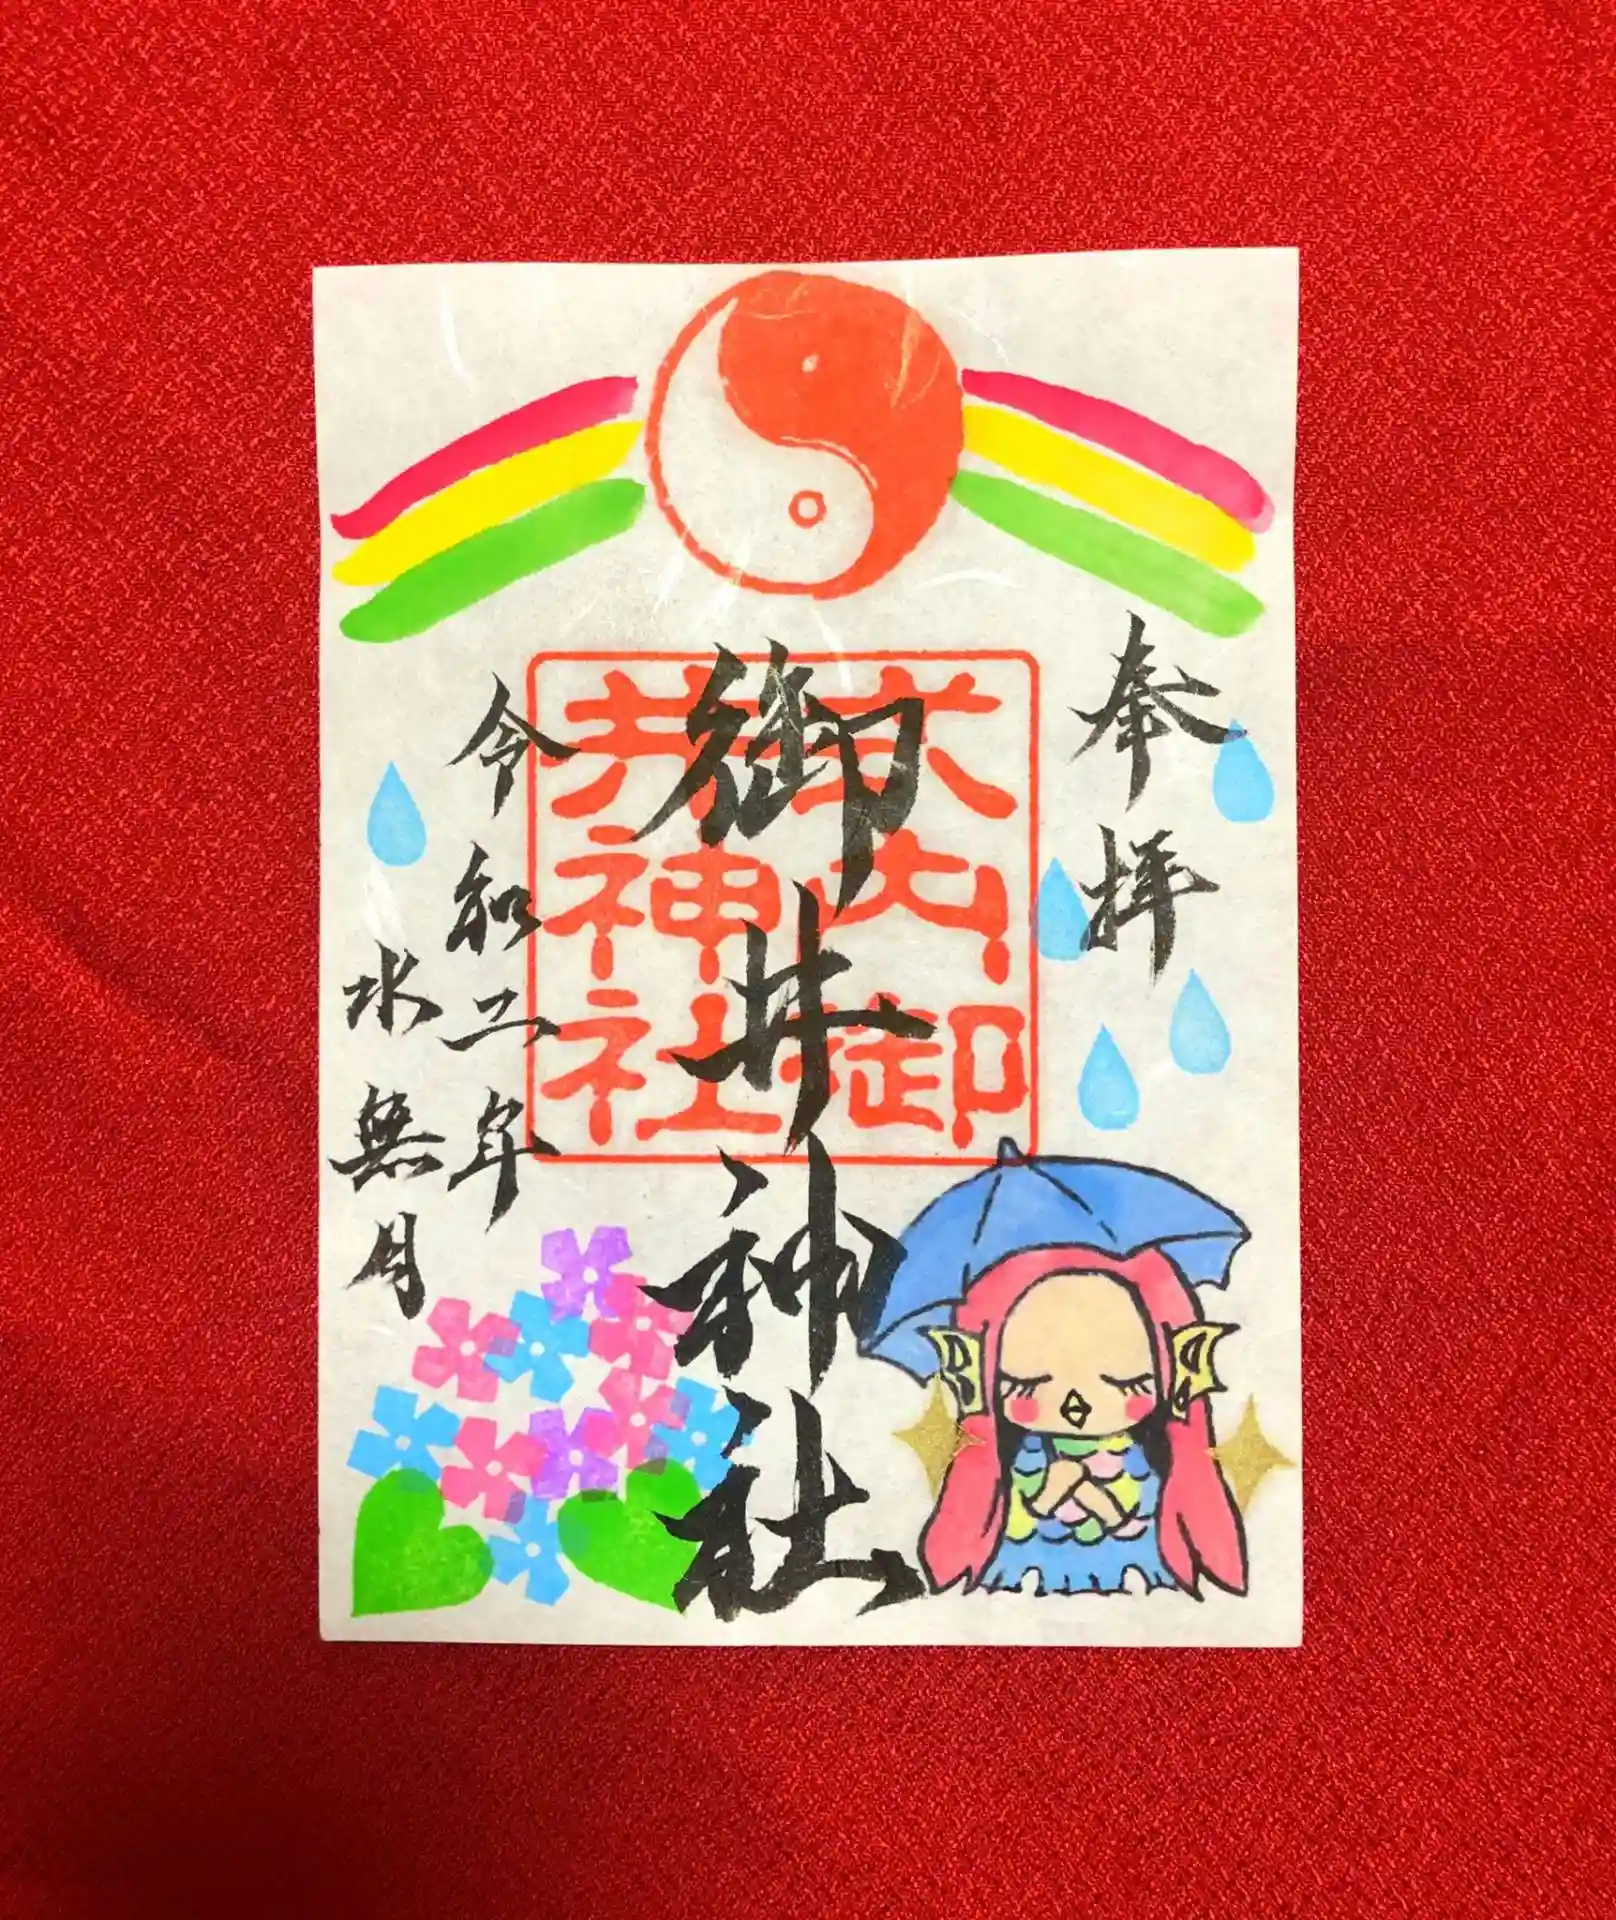 奉拝
式内御
井神社
御井神社
令和二年
水無月